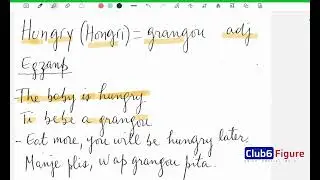 Hungry (Hongri) = grangou adj
Egzanp
The baby is hungry
Ti bebe a grangou
- Eat more, you will be hungry later.
Manje plis, w ap grangou pita.
Club6 Figure